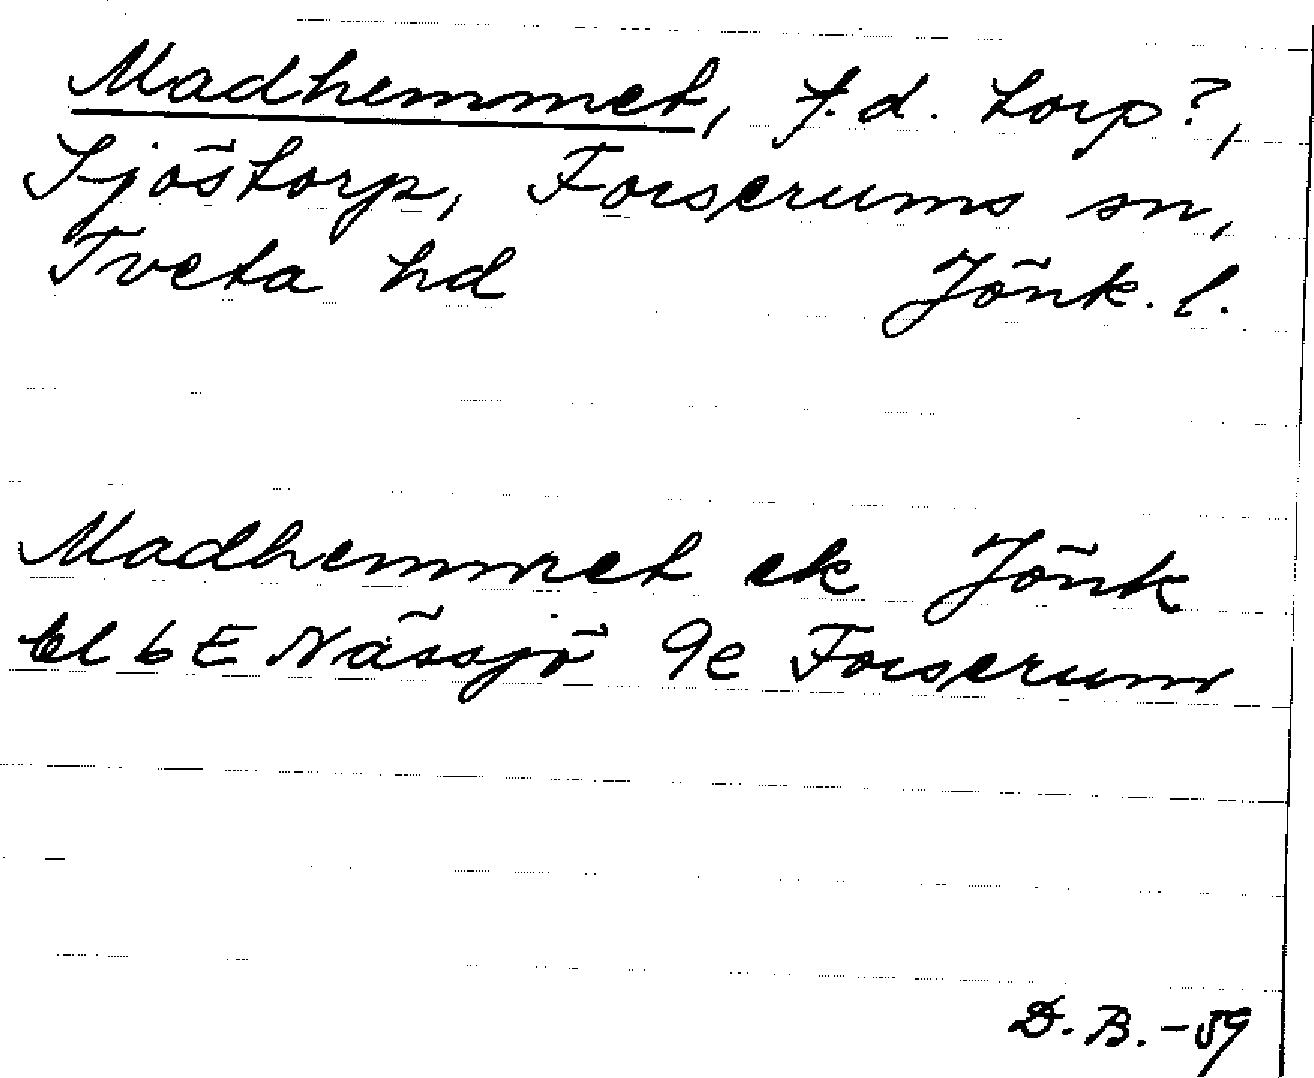 Madhemmet, f.d. torp?,
Sjöstorp, Forserums sn,
Tveta hd Jönk. l.
Madhemmet ek Jönk
bl 6 E Nässjö 9e Forserum
D. B. -59